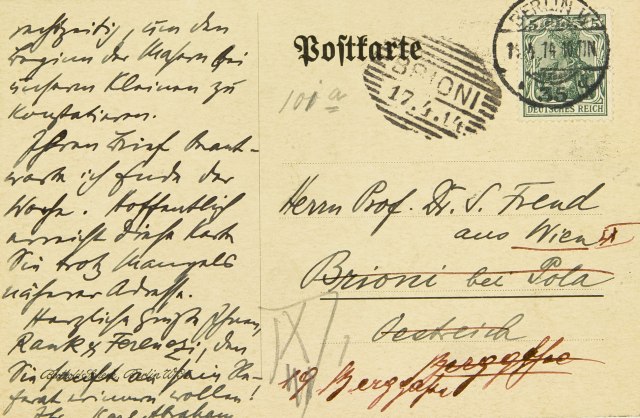 rechtzeitig, um den
Beginn der Masern bei
unseren Kleinen zu
konstatieren.
Ihren Brief beant-
worte ich Ende der
Woche. Hoffentlich
erreicht diese Karte
Sie trotz Mangels
näherer Adresse.
Herzliche Grüße Ihnen,
Rank & Ferenczi, den
Sie
Karl Abraham
Postkarte
BRIONI
17.4.14
BERLIN
35
DEUTSCHES REICH
101 a
Herrn Prof. Dr. S. Freud
aus Wien IX
Brioni bei Pola
Oestreich
Berggasse
19 Berggasse
IX